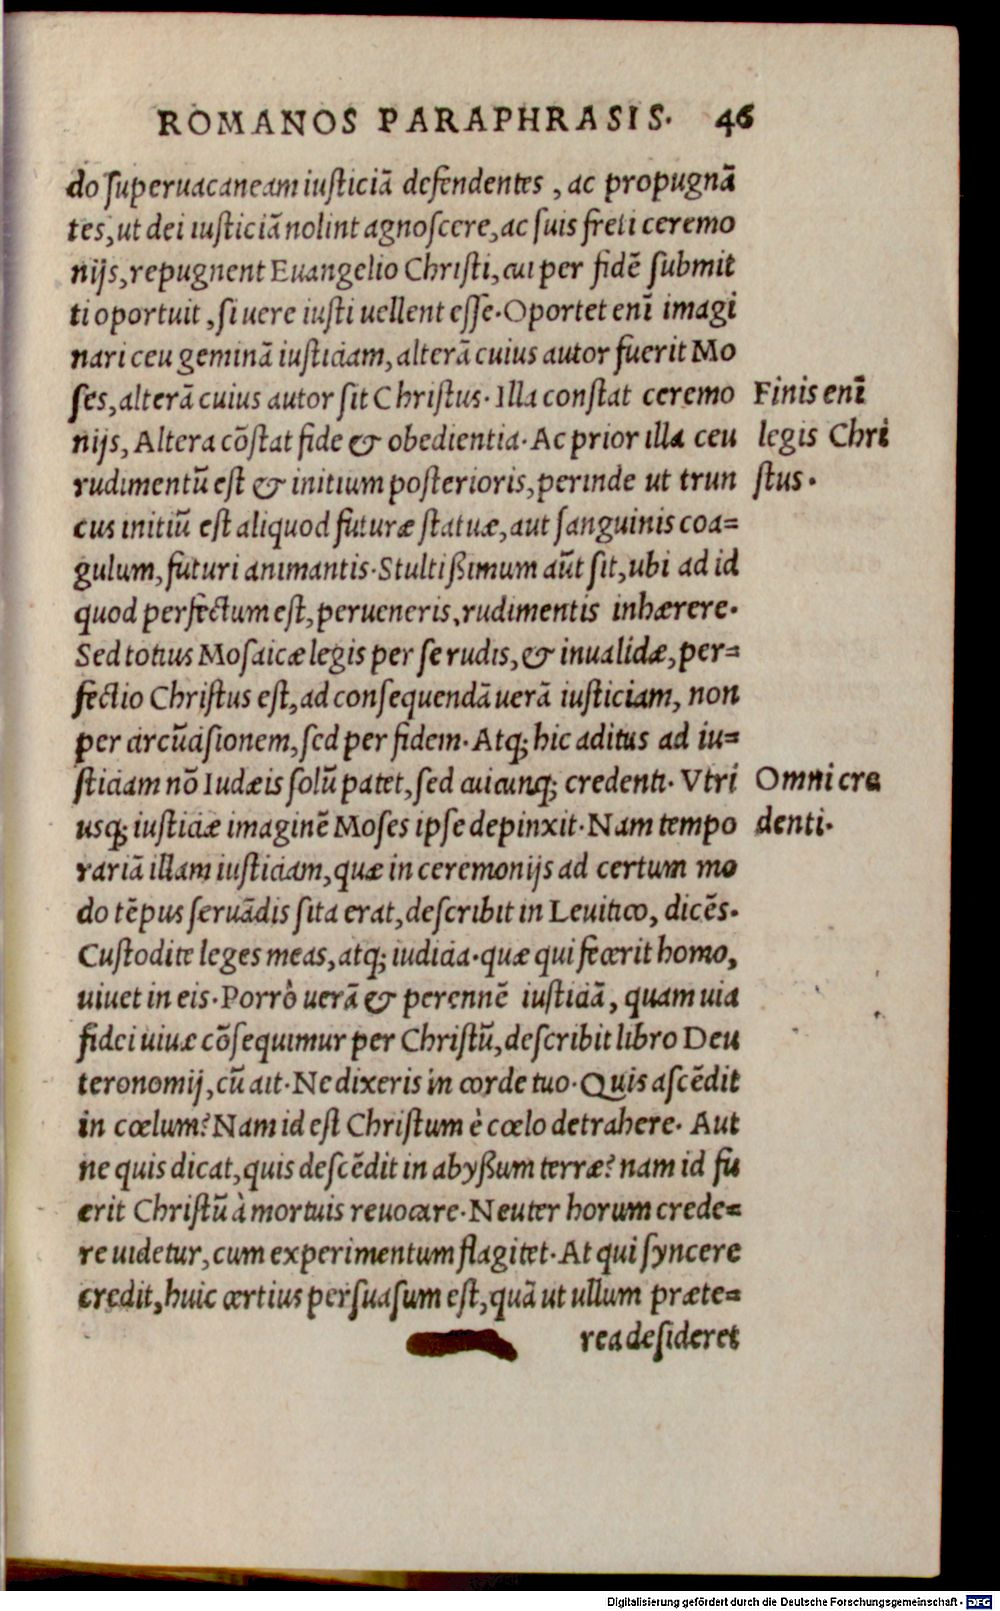 ROMANOS PARAPHRASIS. 46
do superuacaneam iusticiā defendentes, ac propugnā
tes, ut dei iusticiā nolint agnoscere, ac suis freti ceremo
nijs, repugnent Euangelio Christi, cui per fidē submit
ti oportuit, si uere iusti uellent esse. Oportet enī imagi
nari ceu geminā iusticiam, alterā cuius autor fuerit Mo
ses, alterā cuius autor sit Christus. Illa constat ceremo
nijs, Altera cōstat fide & obedientia. Ac prior illa ceu
rudimentū est & initium posterioris, perinde ut trun
cus initiū est aliquod futuræ statuæ, aut sanguinis coa=
gulum, futuri animantis. Stultißimum aūt sit, ubi ad id
quod perfectum est, perueneris, rudimentis inhærere.
Sed totius Mosaicæ legis per se rudis, & inualidæ, per=
fectio Christus est, ad consequendā uerā iusticiam, non
per circūcisionem, sed per fidem. Atq; hic aditus ad iu=
sticiam nō Iudæis solū patet, sed cuicunq; credenti. Vtri
usq; iusticiæ imaginē Moses ipse depinxit. Nam tempo
rariā illam iusticiam, quæ in ceremonijs ad certum mo
do tēpus seruādis sita erat, describit in Leuitico, dicēs.
Custodite leges meas, atq; iudicia. quæ qui fecerit homo,
uiuet in eis. Porrò uerā & perennē iusticiā, quam uia
fidei uiuæ cōsequimur per Christū, describit libro Deu
teronomij, cū ait. Ne dixeris in corde tuo. Quis ascēdit
in cœlum? Nam id est Christum è cœlo detrahere. Aut
ne quis dicat, quis descēdit in abyßum terræ? nam id fu
erit Christū à mortuis reuocare. Neuter horum crede=
re uidetur, cum experimentum flagitet. At qui syncere
credit, huic certius persuasum est, quā ut ullum præte=
rea desideret
Finis enī
legis Chri
stus.
Omni cre
denti.
Digitalisierung gefördert durch die Deutsche Forschungsgemeinschaft - DFG